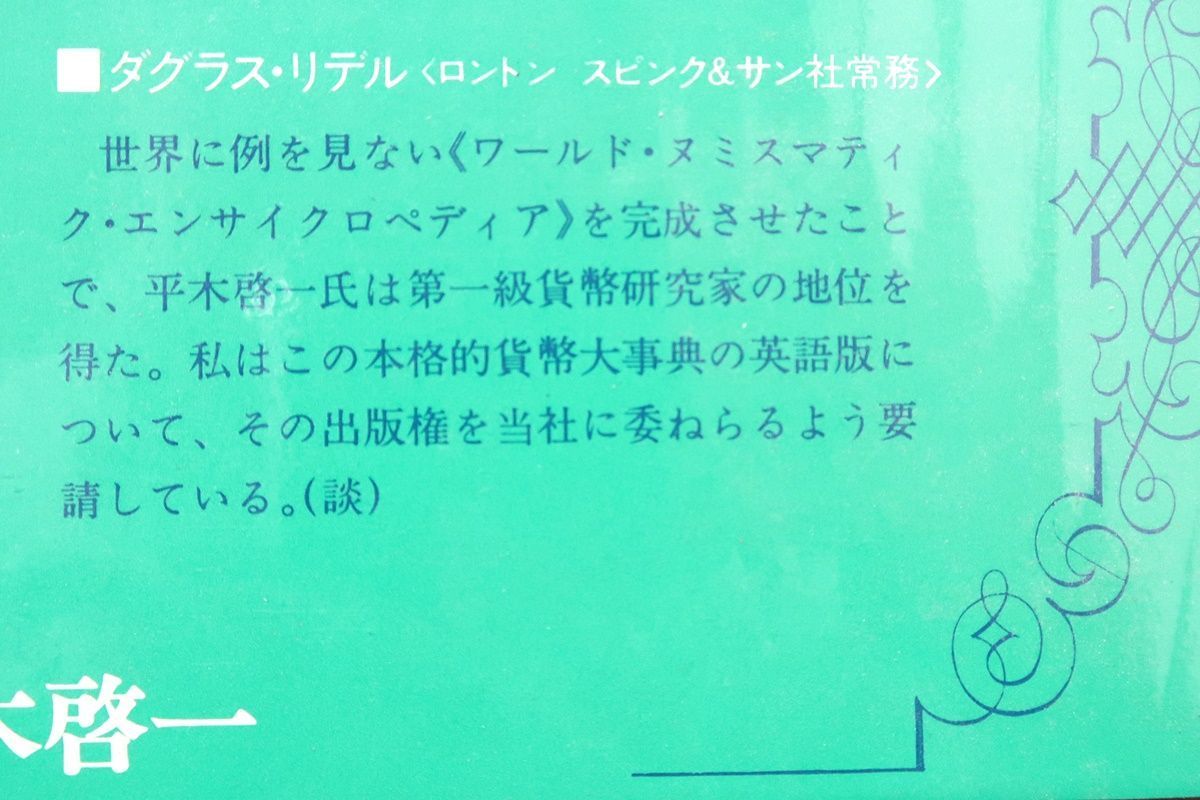 ■ダグラス・リデル〈ロントン スピンク&サン社常務〉
世界に例を見ない《ワールド・ヌミスマティ
ク・エンサイクロペディア》を完成させたこと
で、平木啓一氏は第一級貨幣研究家の地位を
得た。私はこの本格的貨幣大事典の英語版に
ついて、その出版権を当社に委ねらるよう要
請している。(談)
木啓一